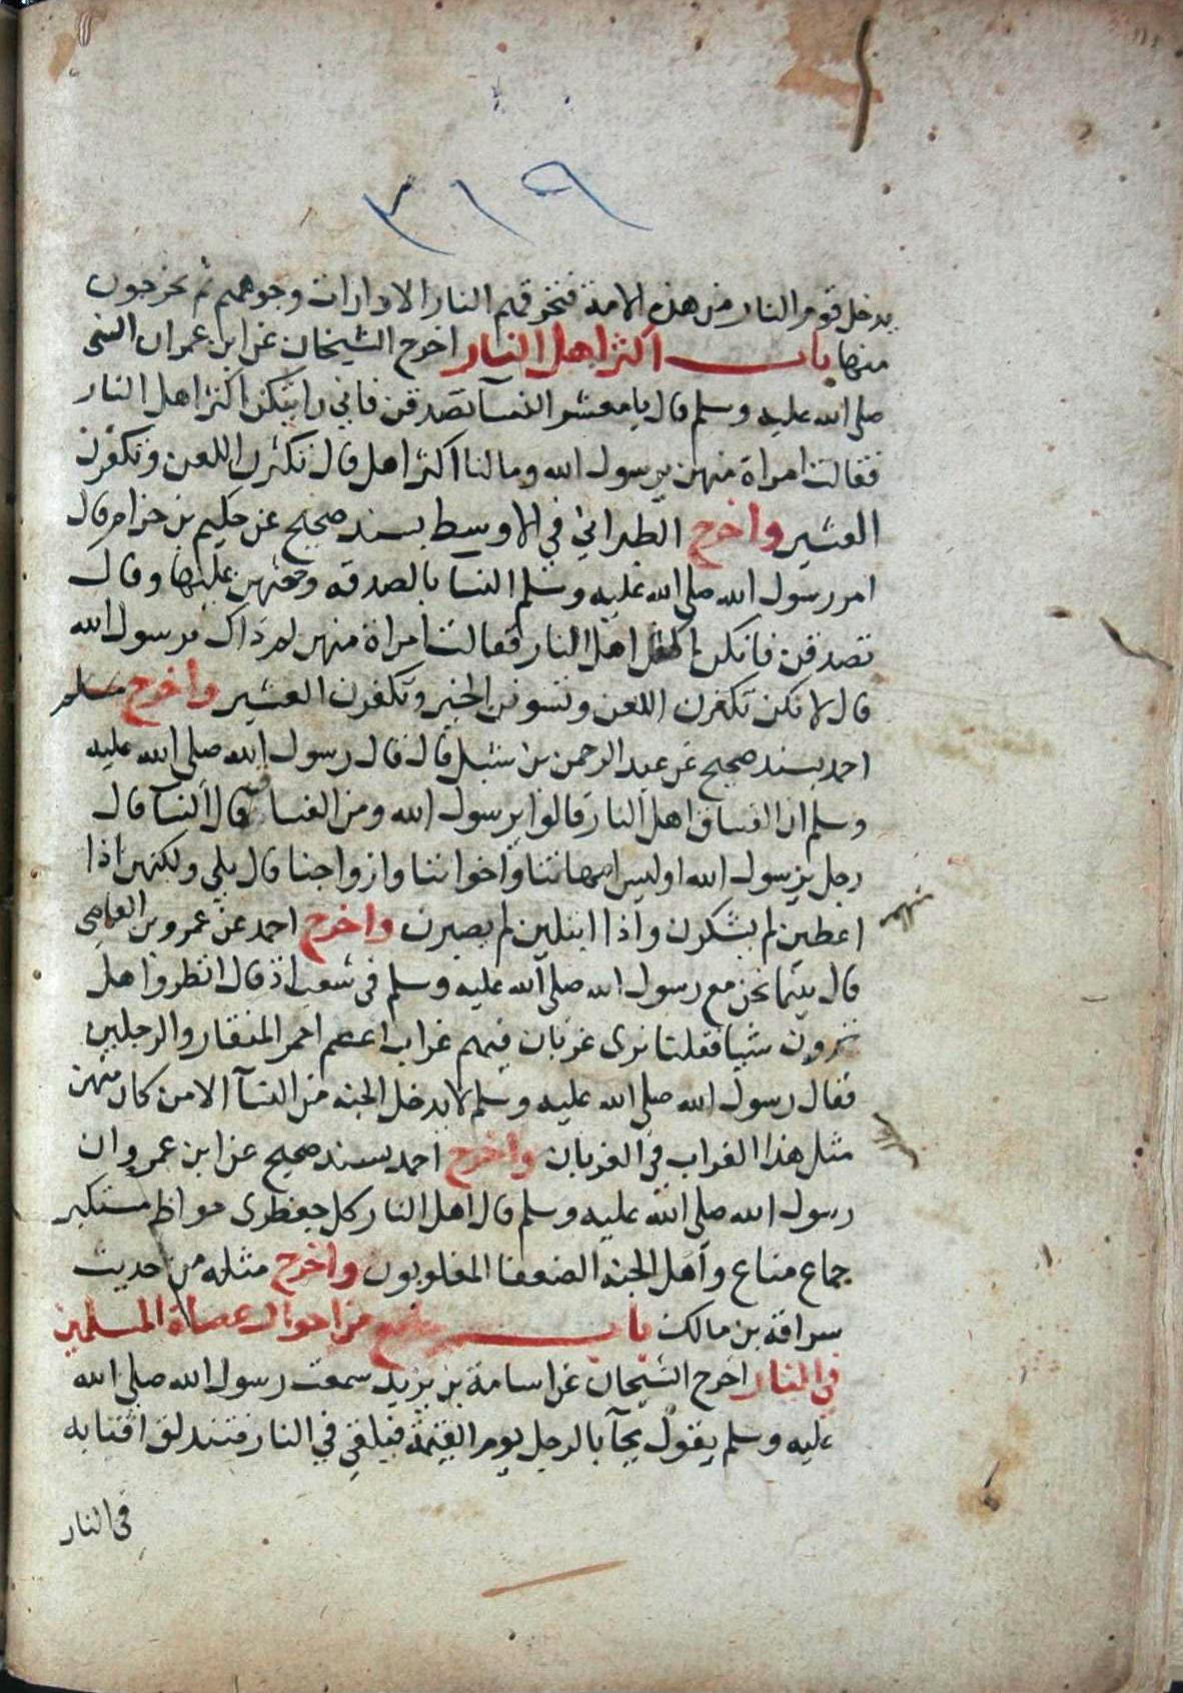 ٣١٩
يدخل قوم النار من هذه الامة فتحرقهم النار الا دارات وجوههم ثم يخرجون
منها باب اكثر اهل النار اخرج الشيخان عن ابن عمر ان النبي
صلى الله عليه وسلم قال يا معشر النسآ تصدقن فاني رايتكن اكثر اهل النار
فقالت امراة منهن يرسول الله وما لنا اكثر اهل قال تكثرن اللعن وتكفرن
العشير واخرج الطبراني في الاوسط بسند صحيح عن حكيم بن حزام قال
امر رسول الله صلى الله عليه وسلم النسا بالصدقه وحثهن عليها وقال
تصدقن فانكن اهل النار فقالت امراة منهن لم ذاك يرسول الله
قال لانكن تكثرن اللعن وتسوفن الخير وتكفرن العشير واخرج
احمد بسند صحيح عن عبد الرحمن بن شبل قال قال رسول الله صلى الله عليه
وسلم ان الفساق اهل النار قالوا يرسول الله ومن الفساق قال النسآ قال
رجل يرسول الله اوليس امهاتنا واخواتنا وازواجنا قال بلي ولكنهن اذا
اعطين لم يشكرن واذا ابتلين لم يصبرن واخرج احمد عن عمرو بن العاصي
قال بينما نحن مع رسول الله صلى الله عليه وسلم في شعب اذ قال انظروا هل
ترون شيا فقلنا نرى غربان فيهم غراب اعصم احمر المنقار والرجلين
فقال رسول الله صلى الله عليه وسلم لا يدخل الجنه من النسآ الا من كان منهن
مثل هذا الغراب في الغربان واخرج احمد بسند صحيح عن ابن عمرو ان
رسول الله صلى الله عليه وسلم قال اهل النار كل جعظرى جواظ مستكبر
جماع مناع واهل الجنه الضعفا المغلوبون واخرج مثله من حديث
سراقه بن مالك باب من احوال عصاة المسلمين
في النار اخرج الشيخان عن اسامة بن زيد سمعت رسول الله صلى الله
عليه وسلم يقول يجآ بالرجل يوم القيمة فيلقي في النار فتندلق اقتابه
في النار